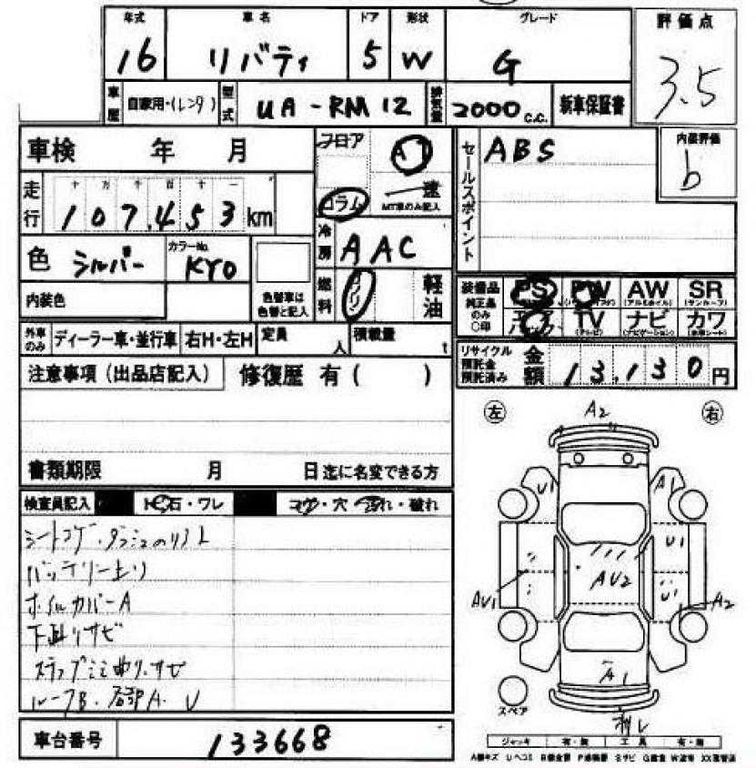 年式 車名 ドア 形状 グレード 評価点
16 リバティ 5 W G 3.5
車歴 自家用・(レンタ) 型式 UA-RM12 排気量 2000 c.c. 新車保証書
車検 年 月 フロア AT セールスポイント ABS 内装評価 b
走行 十 万 千 百 十 一 107,453 km コラム 速 MT車のみ記入
色 シルバー カラーNo. KY0 冷房 AAC
内装色 色替車は色替と記入 燃料 ガソリン 軽油
装備品 純正品のみ○印 PS PW AW SR
エアバック TV ナビ カワ
外車のみ ディーラー車・並行車 右H・左H 定員 人 積載量 t
リサイクル預託金預託済み 金額 13,130円
注意事項(出品店記入) 修復歴 有( )
書類期限 月 日迄に名変できる方
検査員記入 飛石・ワレ コゲ・穴 汚れ・破れ
バッテリー上り
ホイルカバーA
下廻りサビ
ルーフB・各部A U
車台番号 133668
左 右
A2
U1 A1
U1
AU2
AU1 U1 A2
A1
スペア
ジャッキ 有・無 工具 有・無